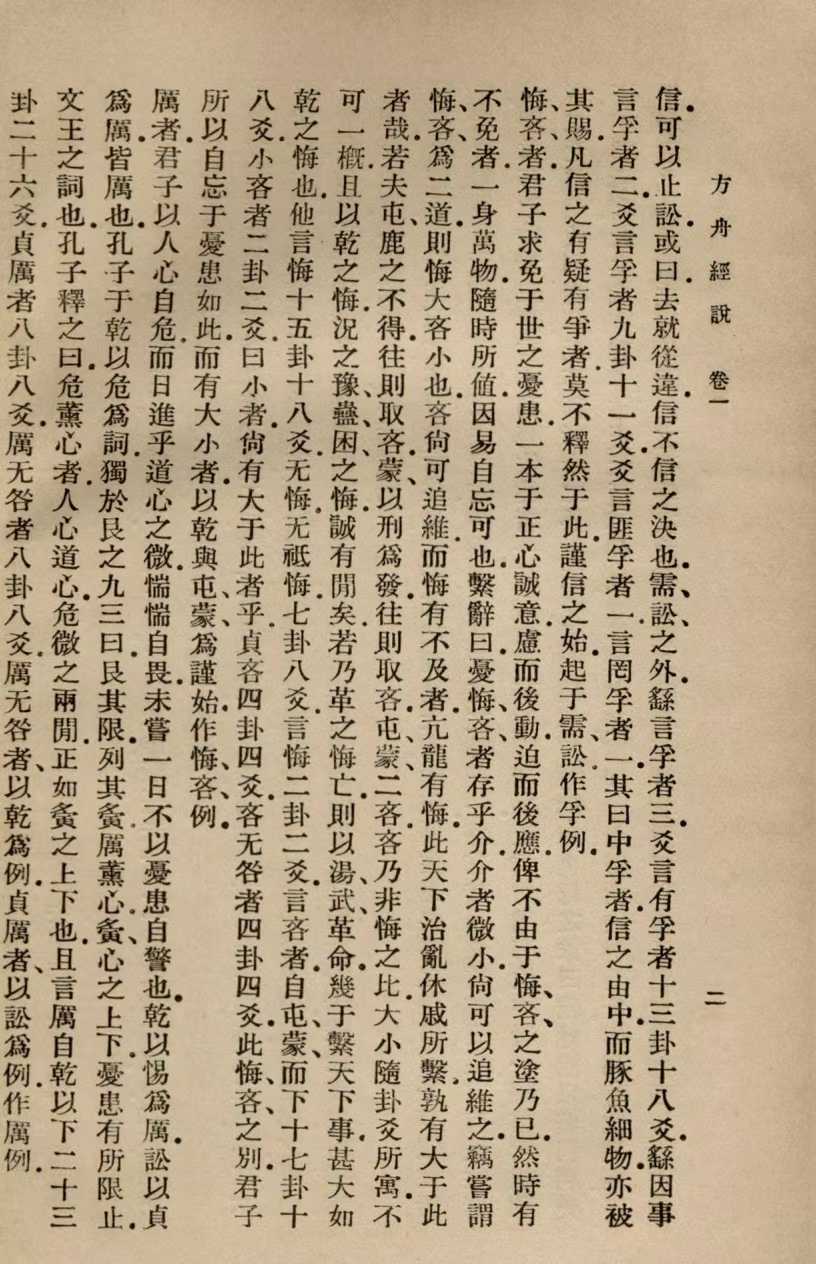 方舟經說　卷一　二
信．可以止訟．或曰．去就從違．信不信之決也．需、訟、之外．繇言孚者三．爻言有孚者十三卦十八爻．繇因事
言孚者二．爻言孚者九卦十一爻．爻言匪孚者一．言罔孚者一．其曰中孚者．信之由中．而豚魚細物．亦被
其賜．凡信之有疑有爭者．莫不釋然于此．謹信之始．起于需、訟．作孚例．
悔、吝、者．君子求免于世之憂患．一本于正心誠意．慮而後動．迫而後應．俾不由于悔、吝、之塗乃已．然時有
不免者．一身萬物．隨時所値．因易自忘可也．繫辭曰．憂悔、吝、者存乎介．介者微小．尙可以追維之．竊嘗謂
悔、吝、爲二道．則悔大吝小也．吝尙可追維．而悔有不及者．亢龍有悔．此天下治亂休戚所繫．孰有大于此
者哉．若夫屯、鹿之不得．往則取吝．蒙、以刑爲發．往則取吝．屯、蒙、二吝．吝乃非悔之比．大小隨卦爻所寓．不
可一概．且以乾之悔．況之豫、蠱、困、之悔．誠有閒矣．若乃革之悔亡．則以湯、武、革命．幾于繫天下事．甚大如
乾之悔也．他言悔十五卦十八爻．无悔无祗悔．七卦八爻．言悔二卦二爻．言吝者．自屯、蒙、而下十七卦十
八爻．小吝者二卦二爻．曰小者．尙有大于此者乎．貞吝四卦四爻．吝无咎者四卦四爻．此悔、吝、之別．君子
所以自忘于憂患如此．而有大小者．以乾與屯、蒙、爲謹始．作悔、吝、例．
厲者．君子以人心自危．而日進乎道心之微．惴惴自畏．未嘗一日不以憂患自警也．乾以惕爲厲．訟以貞
爲厲．皆厲也．孔子于乾以危爲詞．獨於艮之九三曰．艮其限．列其夤．厲薰心．夤、心之上下．憂患有所限止．
文王之詞也．孔子釋之曰．危薰心者．人心道心．危微之兩閒．正如夤之上下也．且言厲自乾以下二十三
卦二十六爻．貞厲者八卦八爻．厲无咎者八卦八爻．厲无咎者、以乾爲例．貞厲者、以訟爲例．作厲例．